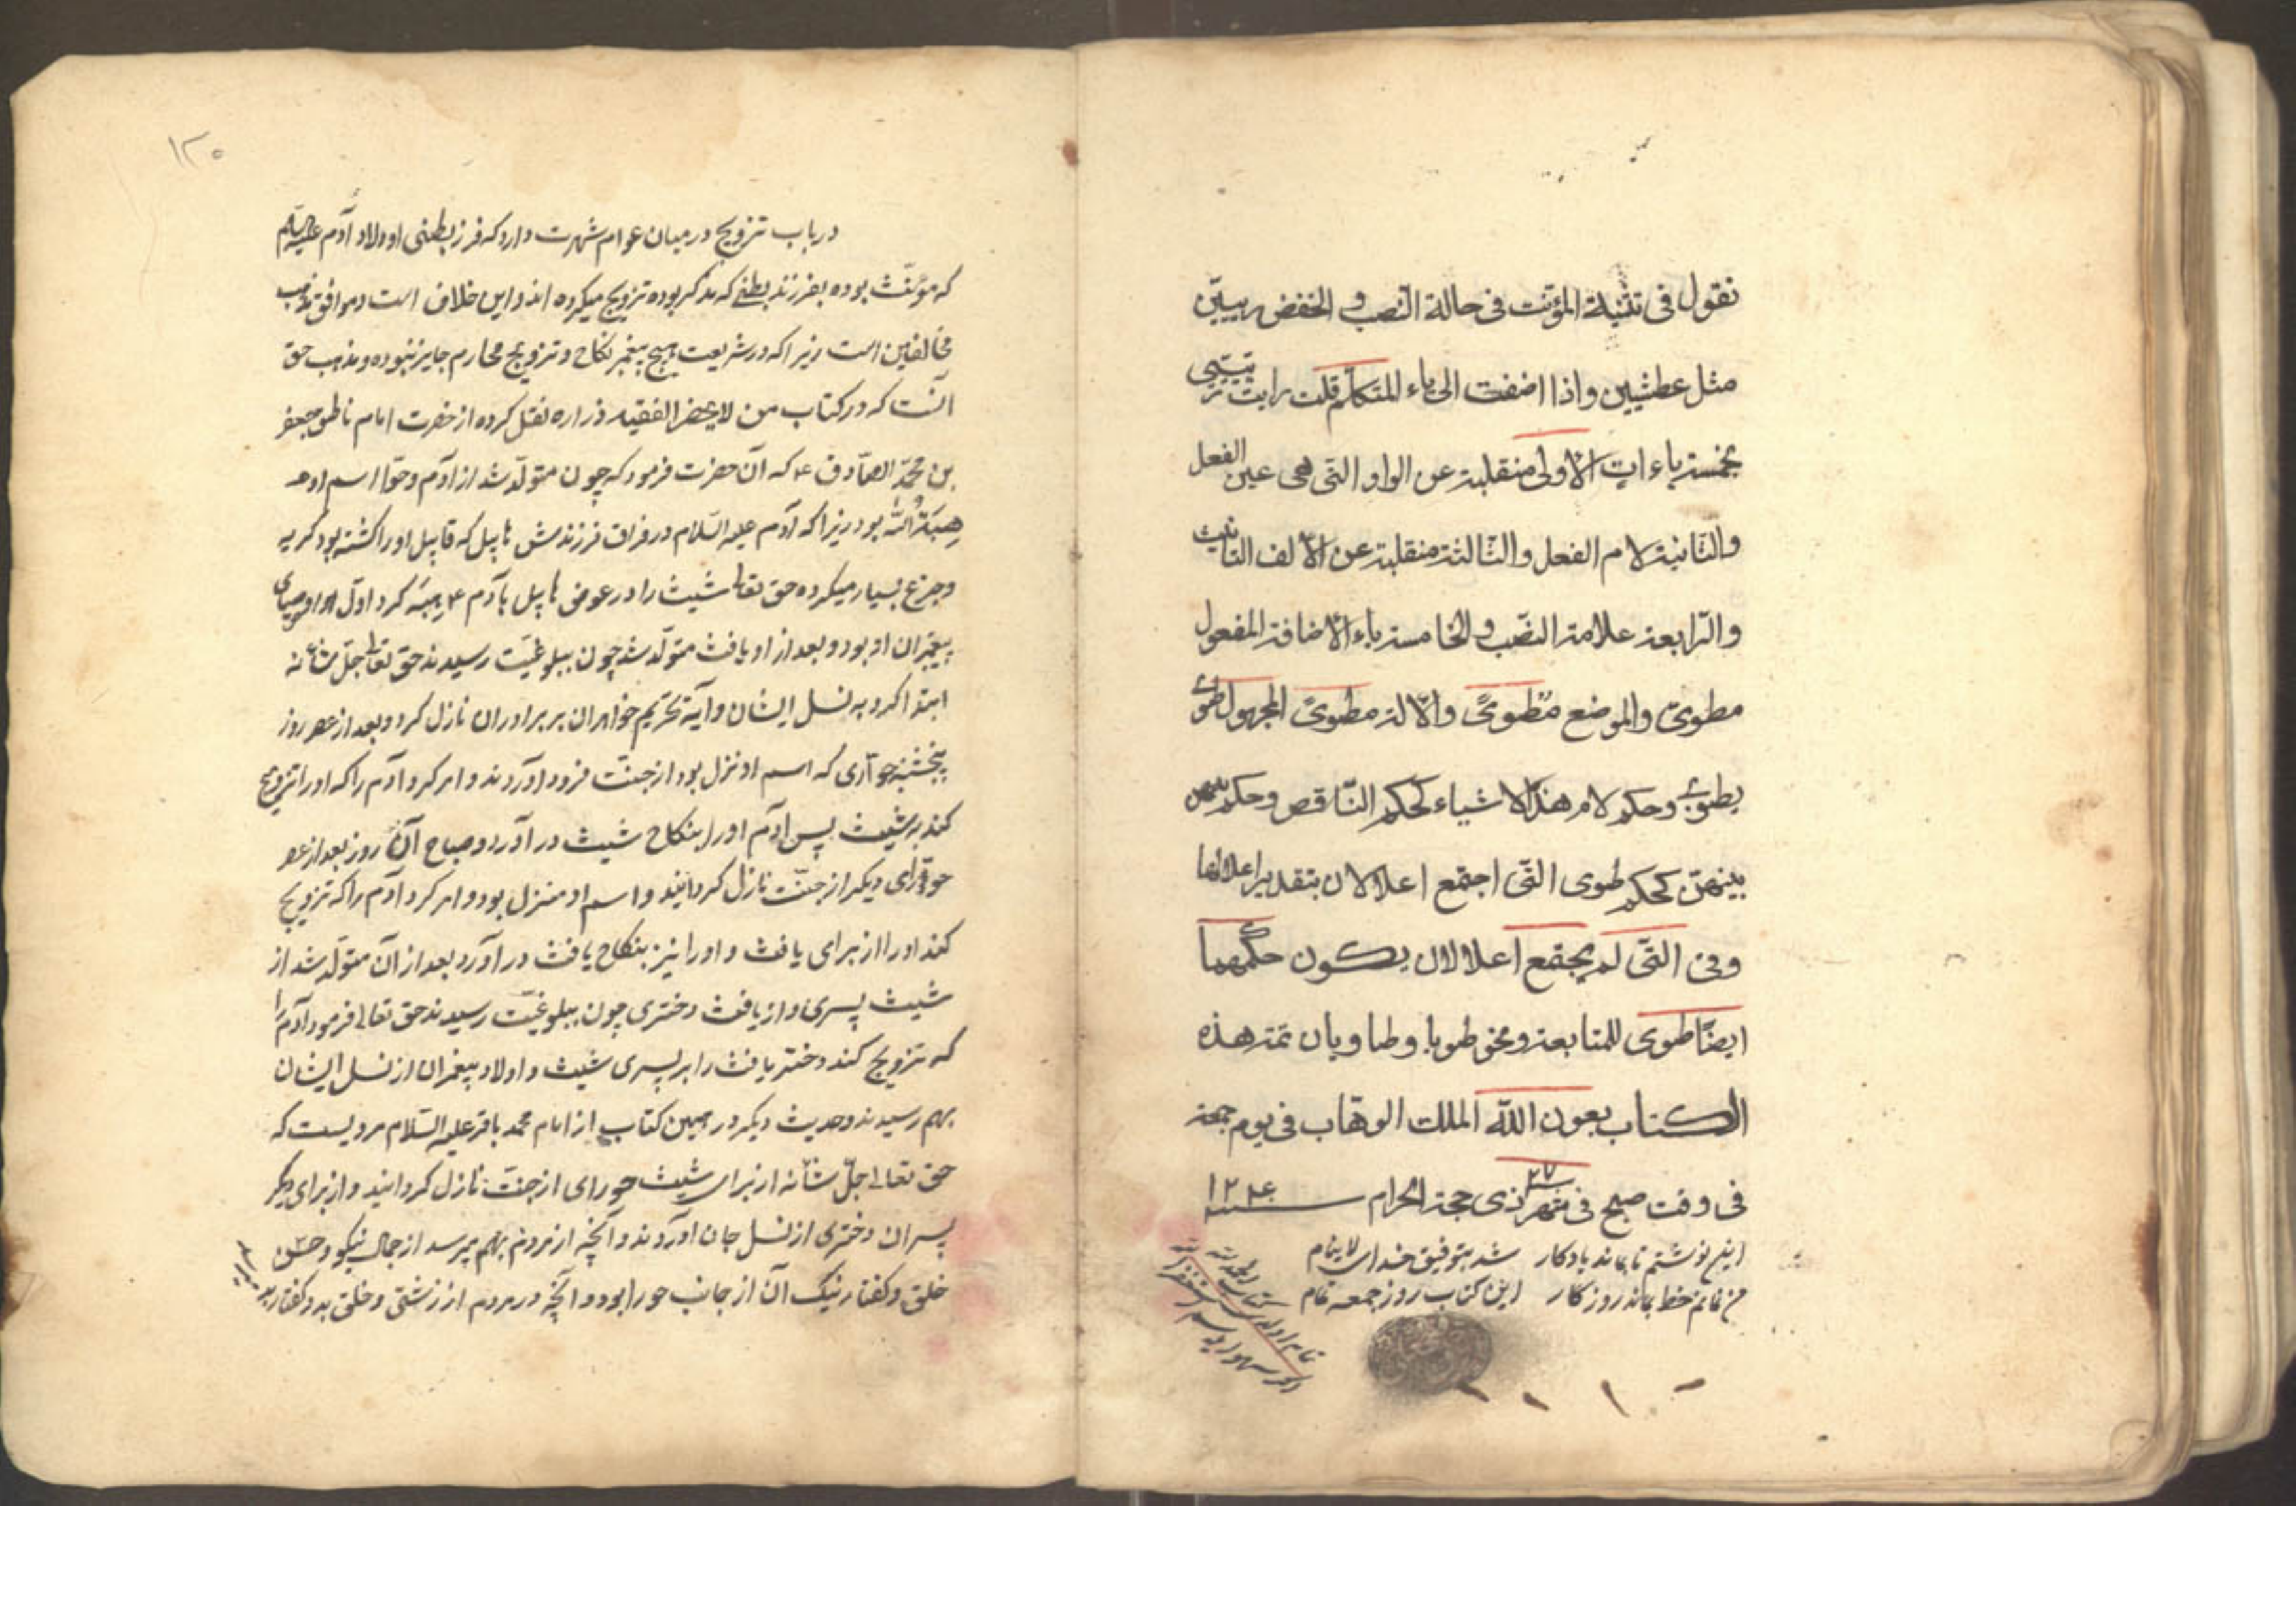 نقول فى تثنية المؤنث فى حالة النصب و الخفض ريبّين
مثل عطشيين واذا اضفت الى ياء المتكلم قلت رايت ريّيىّ
بخمسة ياءات الاولى منقلبة عن الواو التى هى عين الفعل
والثانية لام الفعل والثالثة منقلبة عن الالف التانيث
والرابعة علامة النصب والخامسة ياء الاضافة المفعول
مطوىّ والموضع مَطوىً والالة مطوىً المجهول طوى
يطوى وحكم لام هذه الاشياء كحكم الناقص وحكم عينهن
بينهنّ كحكم طوى التى اجتمع اعلالان بتقدير اعلالها
وفى التى لم يجتمع اعلالان يكون حكمهما
ايضا طوى للمتابعة ونحو طويا وطاويان تمت هذه
الكتاب بعون الله الملك الوهّاب فى يوم جمعه
فى وقت صبح فى شهر ٢٧ ذى حجة الحرام سنه ١٢٤٤
اين نوشتم تا بماند يادكار شد بتوفيق خداى لاينام
من نمانم خط بماند روزكار اين كتاب روز جمعه تمام
١٢٥
در باب تزويج در ميان عوام شهرت دارد كه فرزند بطنى اولاد آدم عليه السلام
كه مؤنّث بوده بفرزند بطنى كه مذكر بوده تزويج ميكرده اند و اين خلاف است و موافق مذهب
مخالفين است زيرا كه در شريعت هيچ پيغمبر نكاح و تزويج محارم جايز نبوده و مذهب حق
آنست كه در كتاب من لا يحضر الفقيه زراره نقل كرده از حضرت امام ناطق جعفر
بن محمّد الصّادق ع كه آن حضرت فرمود كه چون متولّد شد از آدم و حوّا اسم او
هبة الله بود زيرا كه آدم عليه السّلام در فراق فرزندش هابيل كه قابيل او را كشته بود كريه
و جزع بسيار ميكرده حق تعالى شيث را در عوض هابيل بآدم ع هبه كرد اول اوصياى
پيغمبران او بود و بعد از او يافث متولّد شد چون ببلوغيّت رسيدند حق تعالى جلّ شانه
ابتدا كرد به نسل ايشان و آية تحريم خواهران بر برادران نازل كرد و بعد از عصر روز
پنجشنبه حوّارى كه اسم او نزل بود از جنّت فرود آوردند و امر كرد آدم را كه او را تزويج
كند به شيث پس آدم او را بنكاح شيث در آورد و صباح آن روز بعد از عصر
حوّراى ديكر از جنّت نازل كردانيد و اسم او منزل بود و امر كرد آدم را كه تزويج
كند او را از براى يافث و او را نيز بنكاح يافث در آورد بعد از آن متولّد شد از
شيث پسرى و از يافث دخترى چون ببلوغيّت رسيدند حق تعالى فرمود آدم را
كه تزويج كند دختر يافث را بر پسرى شيث و اولاد پيغمبران از نسل ايشان
بهم رسيدند و حديث ديكر در همين كتاب از امام محمد باقر عليه السّلام مرويست كه
حق تعالى جلّ شانه از براى شيث حوراى از جنّت نازل كردانيد و از براى ديكر
پسران دخترى از نسل جان آوردند و آنچه از مردم بهم ميرسد از جمال نيكو و حسن
خلق و كفتار نيك آن از جانب حورا بود و آنچه در مردم از زشتى و خلق بد و كفتار بد